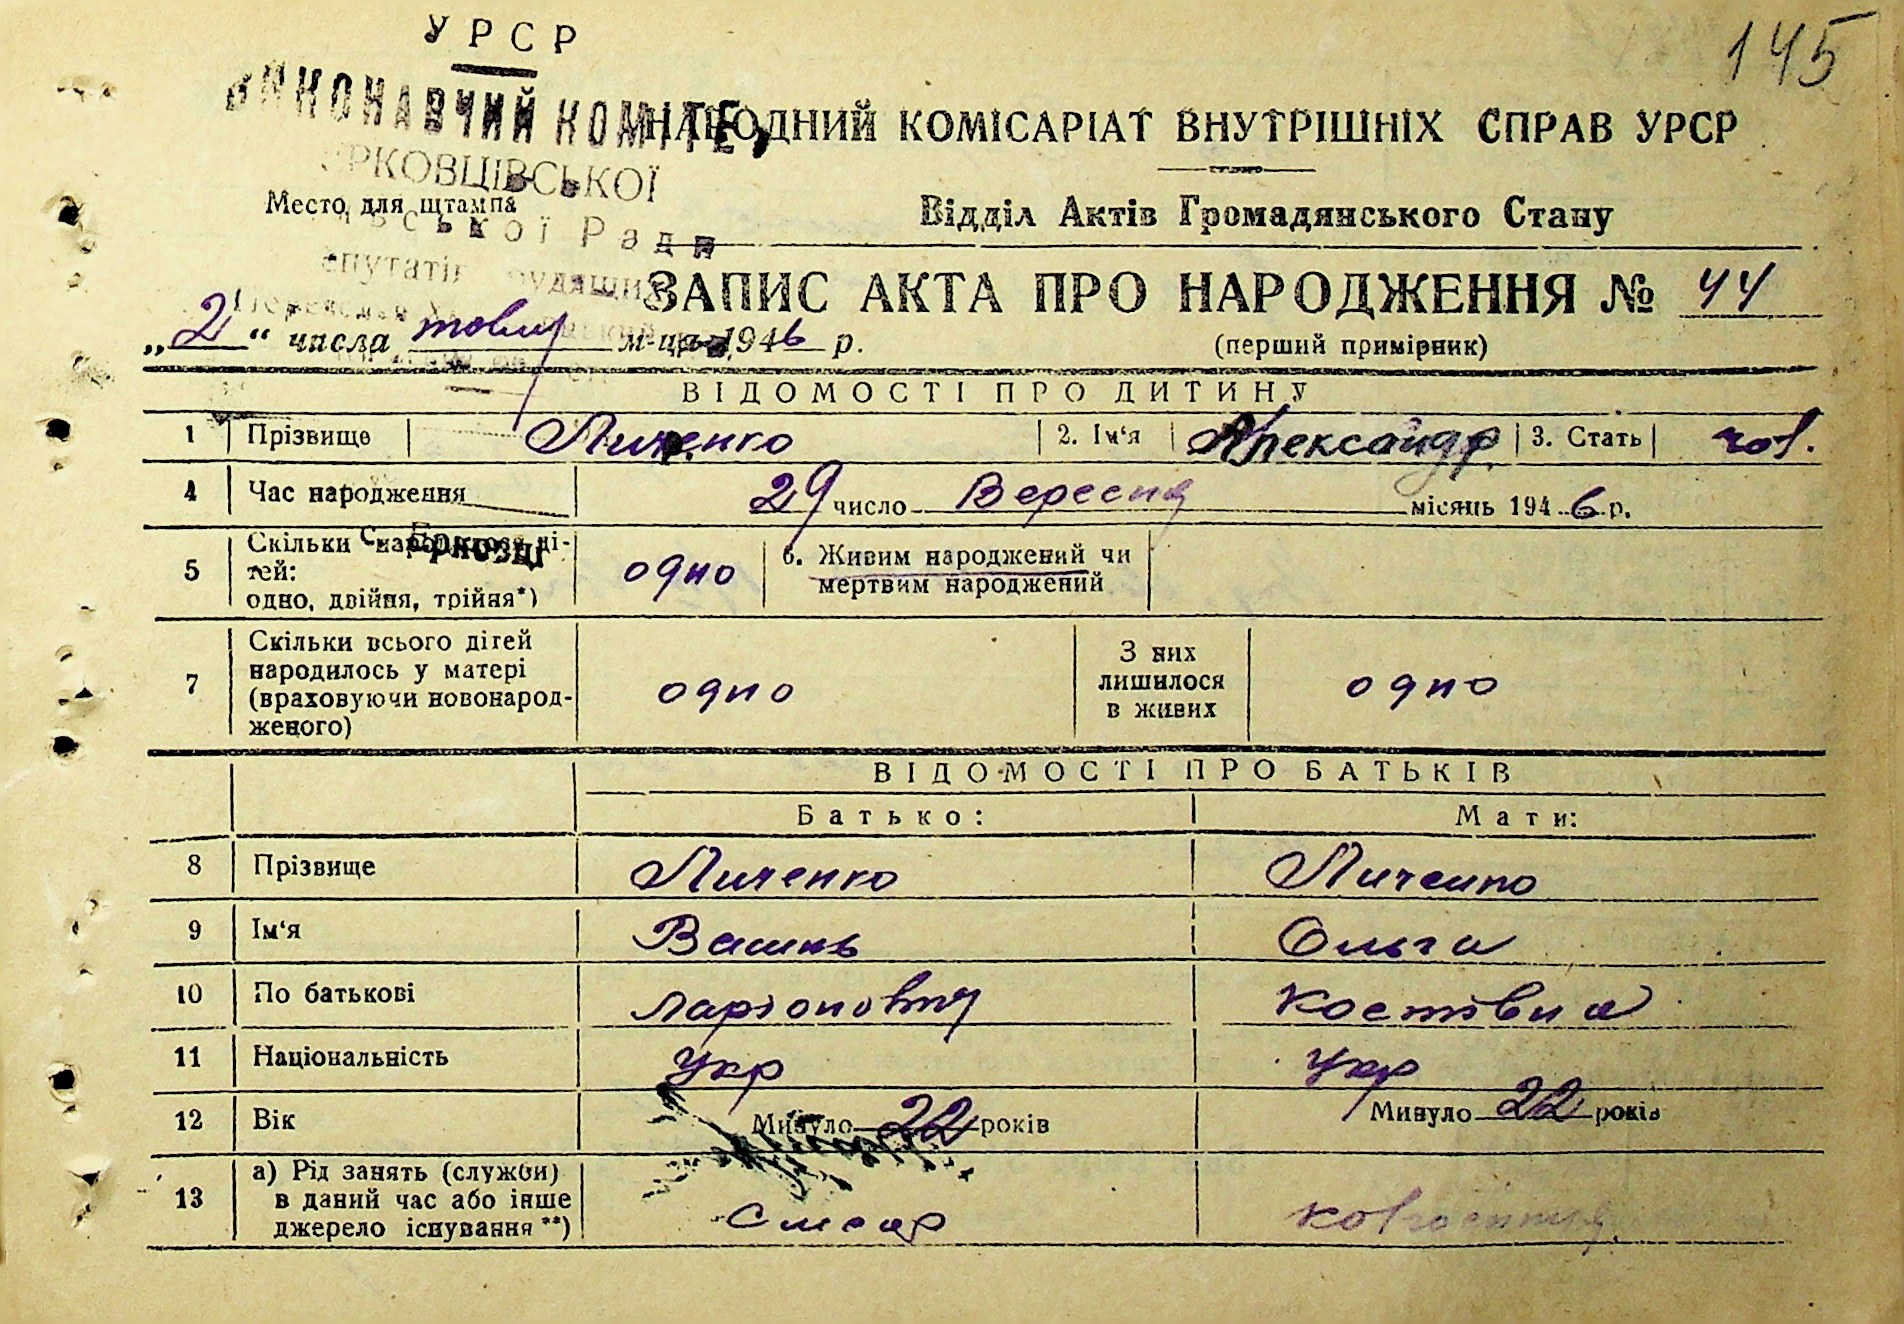 145
УРСР
ВИКОНАВЧИЙ КОМІТЕ
НАРОДНИЙ КОМІСАРІАТ ВНУТРІШНІХ СПРАВ УРСР
РКОВЦІВСЬКОЇ
Место для штампа
Відділ Актів Громадянського Стану
вської Ради
епутатів рудящих
ЗАПИС АКТА ПРО НАРОДЖЕННЯ № 44
„2“ числа м-ця 1946 р.
(перший примірник)
ВІДОМОСТІ ПРО ДИТИНУ
1 Прізвище Личенко 2. Ім‘я Александр 3. Стать чол.
4 Час народження 29 число Вересня місяць 1946 р.
5 Скільки народилося ді-
тей:
одно, двійня, трійня*) одно 6. Живим народжений чи
мертвим народжений
7 Скільки всього дітей
народилось у матері
(враховуючи новонарод-
женого) одно З них
лишилося
в живих одно
ВІДОМОСТІ ПРО БАТЬКІВ
Батько: Мати:
8 Прізвище Личенко Личенко
9 Ім‘я Ольга
10 По батькові Ларіонович Костівна
11 Національність Укр Укр
12 Вік Минуло 22 років Минуло 22 років
13 а) Рід занять (служби)
в даний час або інше
джерело існування**) Слесар